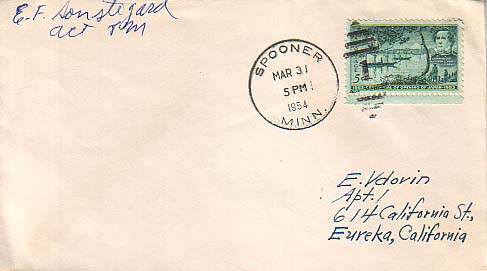 E.F. Sonstegard
act PM
SPOONER
MAR 31
5 PM
1954
MINN.
5¢
CENTENNIAL OF OPENING OF JAPAN
E. Vdovin
Apt. 1
614 California St.,
Eureka, California